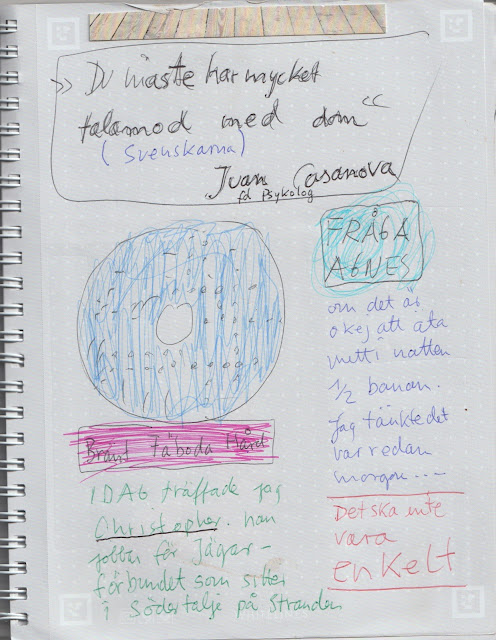 » Du måste har mycket
talamod med dom “
(Svenskarna)
Juan Casanova
fd psykolog
FRÅGA
AGNES
om det är
okej att äta
mitt i natten
1/2 banan.
Jag tänkte det
var redan
morgon ---
Det ska inte
vara
enkelt
Bränt Fäboda Hård
IDAG träffade jag
Christopher. han
jobbar för Jägar-
förbundet som sitter
i Södertalje på stranden